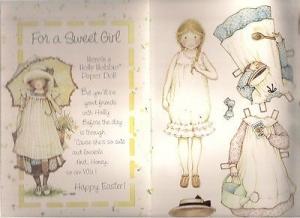 For a Sweet Girl
Here's a
Holly Hobbie™
Paper Doll
Bet you'll be
good friends
with Holly
Before the day
is through
'Cause she's so cute
and loveable
And, Honey,
so are YOU!
Happy Easter!